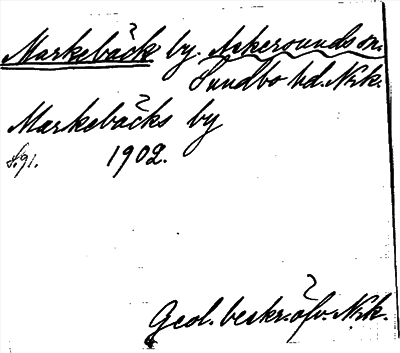 Markebäck by. Askersunds sn.
Sundbo hd. Nrk.
Markebäcks by
S. 91. 1902.
Geol. beskr. öfv. Nrk.